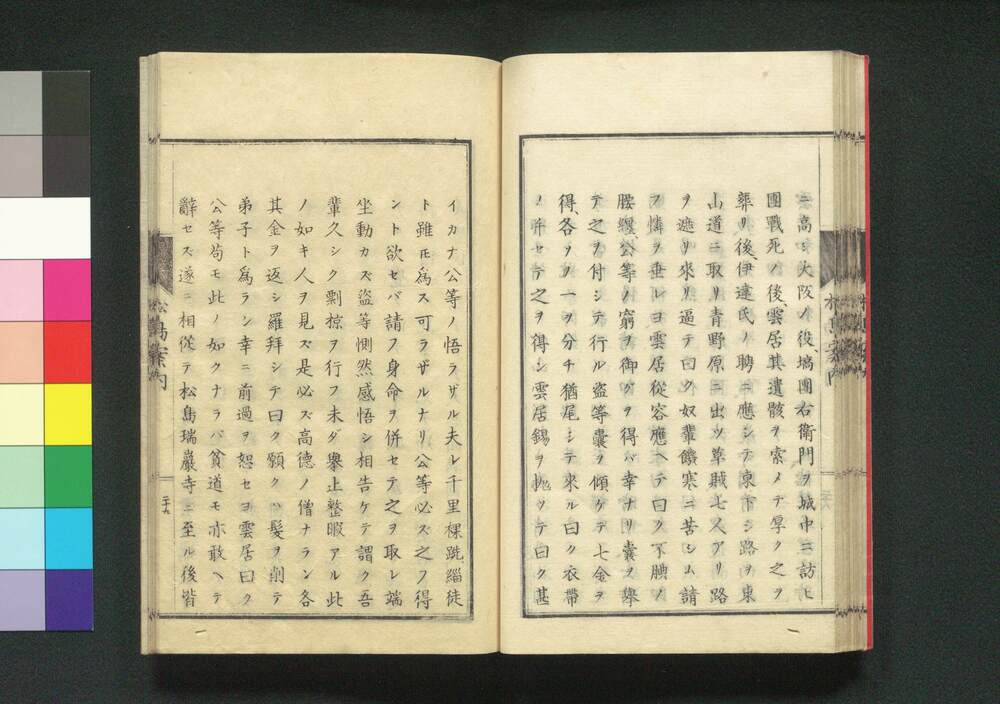 ニ高シ大阪ノ役、塙團右衛門ヲ城中ニ訪ヒ
團戰死ノ後、雲居其遺骸ヲ索メテ厚ク之ヲ
葬リ後、伊達氏ノ聘ニ應シテ東下シ路ヲ東
山道ニ取リ青野原ニ出ツ草賊七人アリ路
ヲ遮リ來リ逼テ曰ク奴輩饑寒ニ苦シム請
フ憐ヲ垂レヨ雲居從容應ヘテ曰ク不腆ノ
腰纏、公等ノ窮ヲ御グヲ得バ幸ナリ嚢ヲ擧
テ之ヲ付シテ行ル盗等嚢ヲ傾ケテ七金ヲ
得、各ヲノ一ヲ分チ猶尾シテ來ル曰ク衣帶
ノ并セテ之ヲ得シ雲居錫ヲ抛ツテ曰ク甚
イカナ公等ノ悟ラザル夫レ千里裸跣、緇徒
ト雖𪜈爲ス可ラザルナリ公等必ス之フ得
ント欲セバ請フ身命ヲ併セテ之ヲ取レ端
坐動カズ盗等惻然感悟シ相告ケテ謂ク吾
輩久シク剽掠ヲ行フ未ダ擧止整暇アル此
ノ如キ人ヲ見ズ是必ズ高德ノ僧ナラン各
其金ヲ返シ羅拜シテ曰ク願クハ髪ヲ削テ
弟子ト爲ラン幸ニ前過ヲ恕セヨ雲居曰ク
公等苟モ此ノ如クナラバ貧道モ亦敢ヘテ
辭セズ遂ニ相從テ松島瑞巖寺ニ至ル後皆
松島案内
二十六